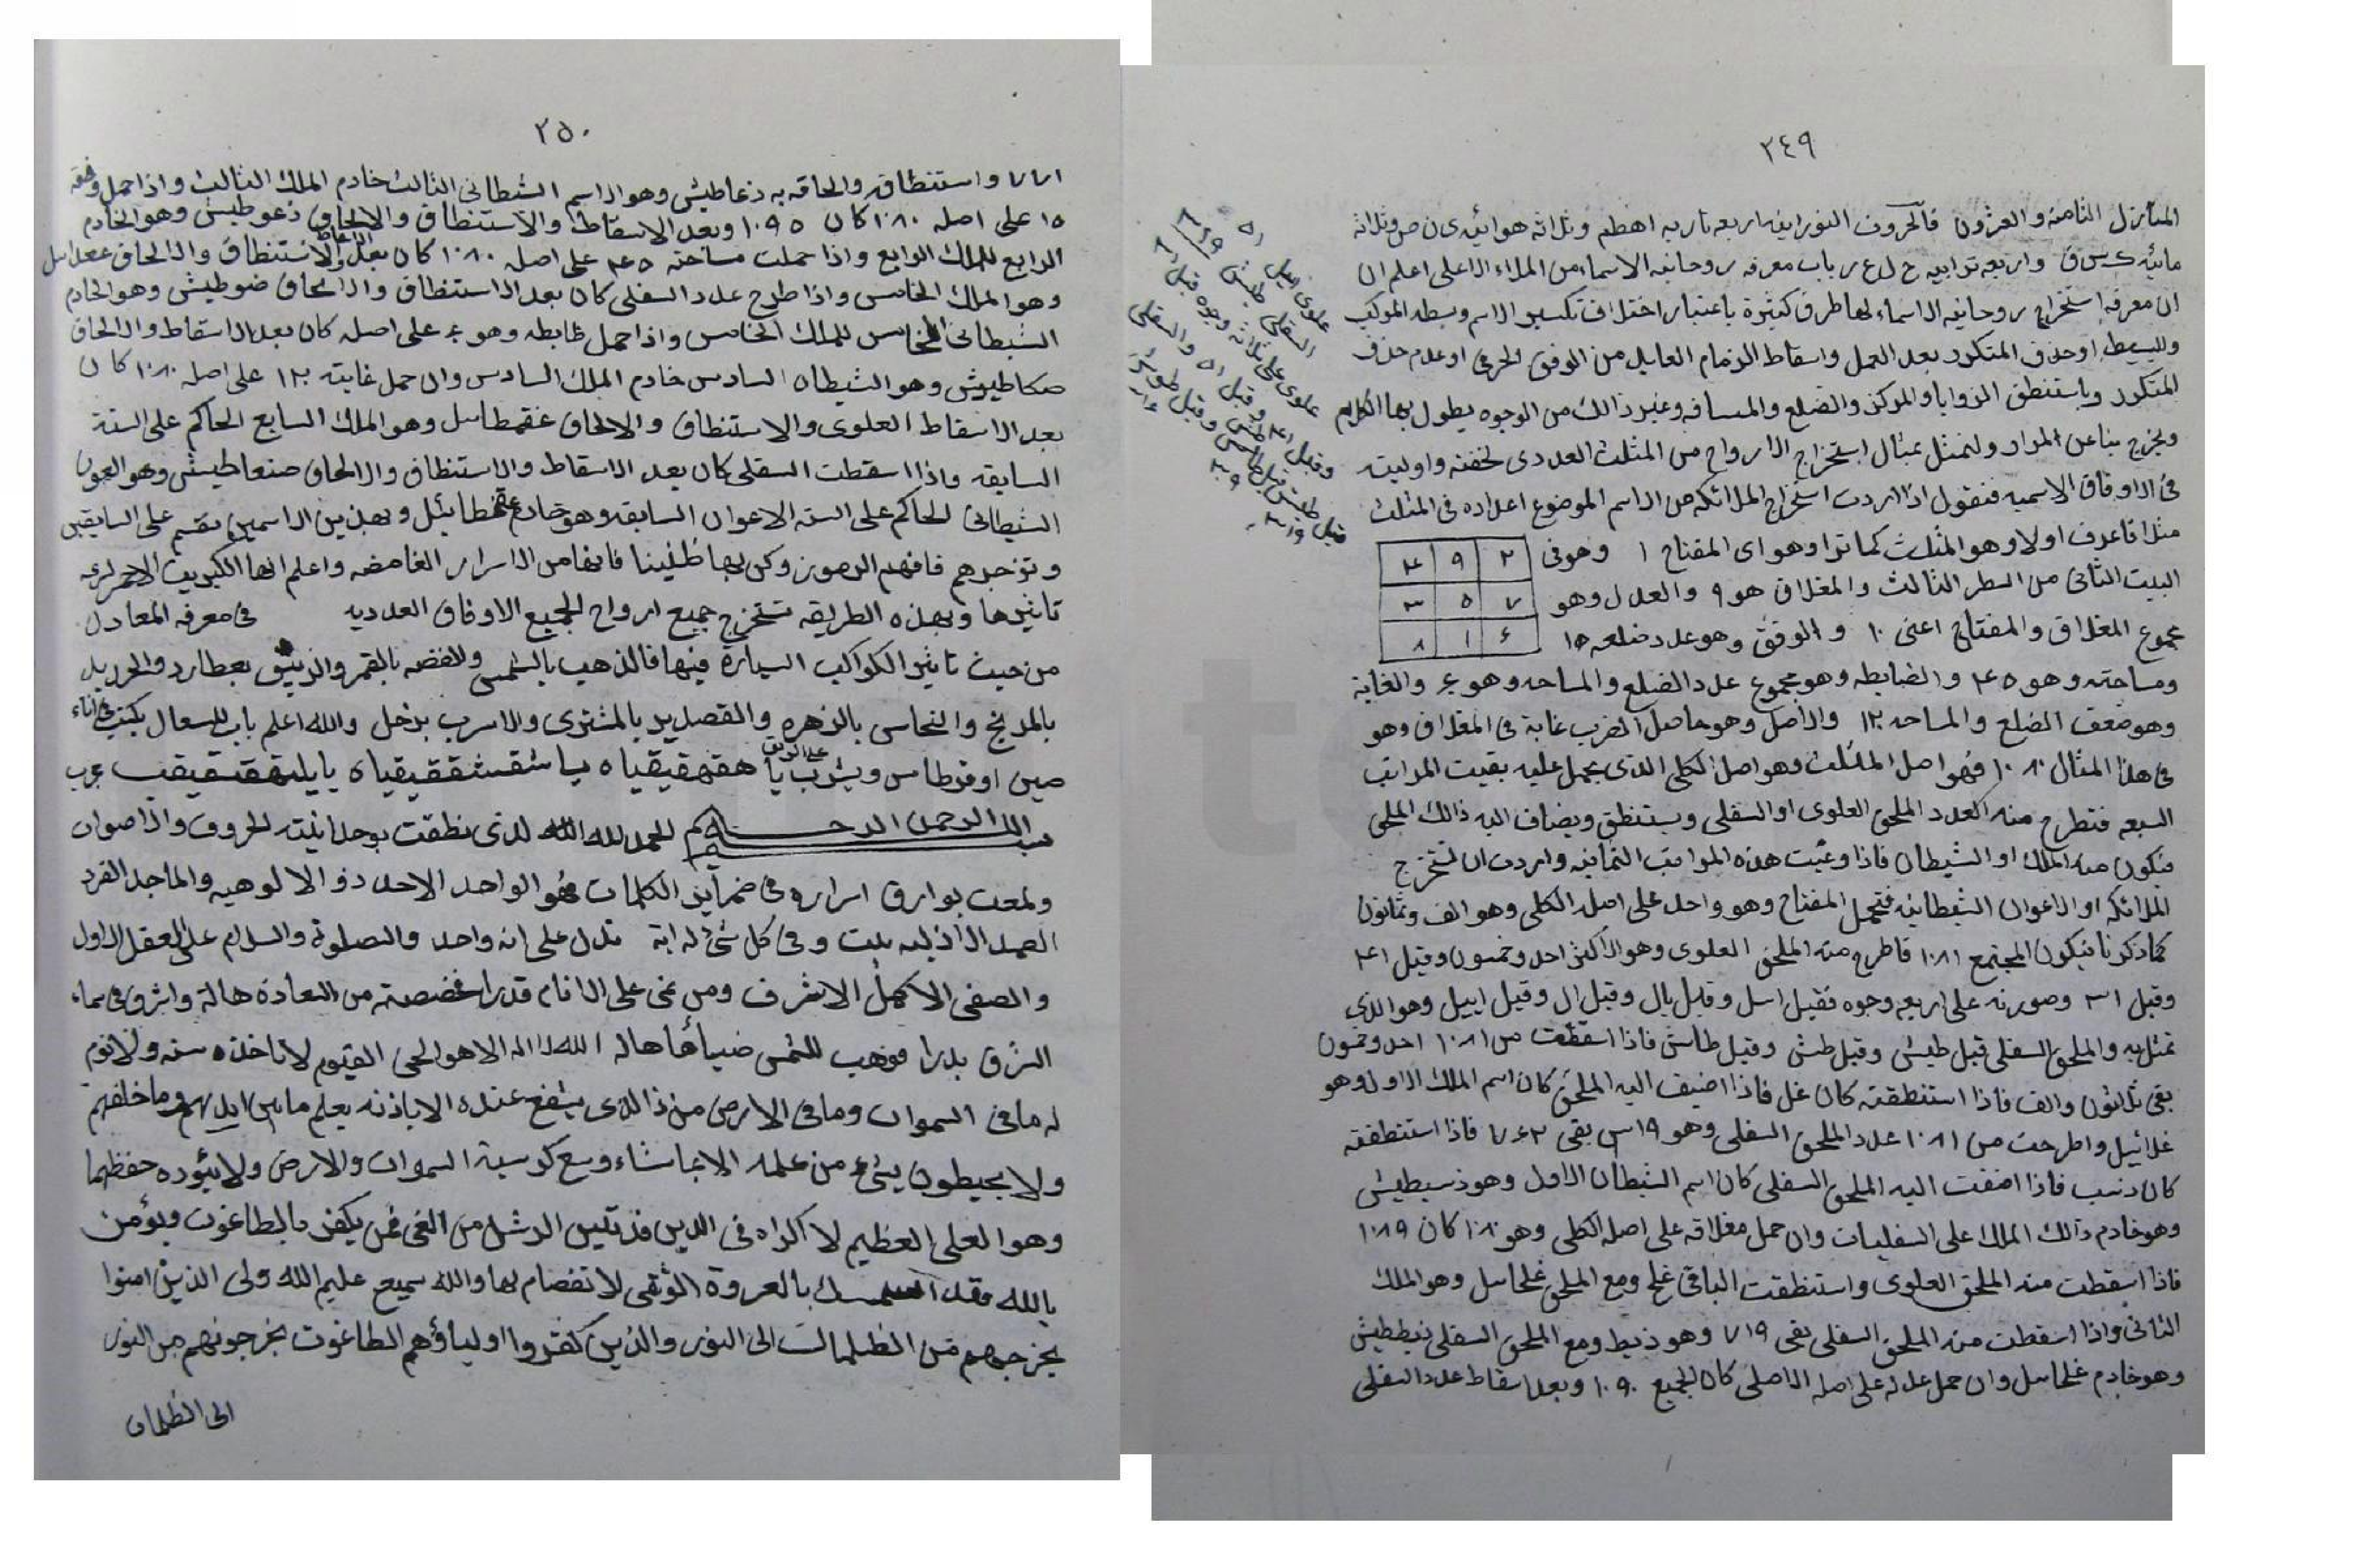 ٢٤٩
المنازل الثامنة والعشرون فالحروف النورانيه اربعه ناريه اهطم وثلاثه هوائيه ى ن ص وثلاثة
مائيه ك س ق واربعه ترابيه ح ل ع ر باب معرفه روحانيه الاسماء من الملاء الاعلى اعلم ان
ان معرفه استخراج روحانيه الاسماء لها طرق كثيرة باعتبار اختلاف تكسير الاسم وبسطه المركب
والبسيط او حذف المتكرر بعد العمل واسقاط الزمام العايل من الوفق الحرفى او عدم حذف
المتكرر وباستنطق الزوايا والمركز والضلع والمسافه وغير ذالك من الوجوه يطول بها الكلام
ويخرج بنا عن المراد ولنمثل بمثال استخراج الارواح من المثلث العددى لخفته واوليته
فى الاوفاق الاسميه فنقول اذا اردت استخراج الملائكه من الاسم الموضوع اعداده فى المثلث
مثلا فاعرف اولا وهو المثلث كما ترا وهو اى المفتاح ١ وهو فى
٢ ٩ ٤
البيت الثانى من السطر الثالث والمغلاق هو ٩ والعدل وهو
٧ ٥ ٣
مجموع المغلاق والمفتاح اعنى ١٠ و الوفق وهو عدد ضلعه ١٥
٦ ١ ٨
ومساحته وهو ٤٥ والضابطه وهو مجموع عدد الضلع والمساحه وهو ٦٠ والغاية
وهو ضعف الضلع والمساحه ١٢٠ والاصل وهو حاصل الضرب غاية فى المغلاق وهو
فى هذا المثال ١٠٨٠ فهو اصل المثلث وهو اصل الكلى الذى يحمل عليه بقيت المراتب
السبعه فتطرح منه العدد الملحق العلوى او السفلى ويستنطق ويضاف اليه ذالك الملحق
فيكون منه الملك او الشيطان فاذا وعيت هذه المراتب الثمانيه واردت ان تستخرج
الملائكه او الاعوان الشيطانيه فتحمل المفتاح وهو واحد على اصله الكلى وهو الف وثمانون
كما ذكرنا فيكون المجتمع ١٠٨١ فاطرح منه الملحق العلوى وهو الاكثر احد وخمسون وقيل ٤١
وقيل ٣١ وصورته على اربعه وجوه فقيل اىىل وقيل يال وقيل ال وقيل اييل وهو الذى
نمثل به والملحق السفلى قيل طيش وقيل طش وقيل طاش فاذا اسقطت من ١٠٨١ احد وخمسون
بقى ثلاثون والف فاذا استنطقته كان غل فاذا اضيف اليه الملحق كان اسم الملك الاول وهو
غلائيل واطرحت من ١٠٨١ عدد الملحق السفلى وهو ٣١٩ بقى ٧٦٢ فاذا استنطقته
كان ذسب فاذا اضفت اليه الملحق السفلى كان اسم الشيطان الاول وهو ذسبطيش
وهو خادم ذالك الملك على السفليات وان حمل مغلاقه على اصله الكلى وهو ١٠٨٠ كان ١٠٨٩
فاذا اسقطت منه الملحق العلوى واستنطقت الباقى غلح ومع الملحق غلحاىىل وهو الملك
الثانى واذا اسقطت منه الملحق السفلى بقى ٧١٩ وهو ذيط ومع الملحق السفلى ذيططيش
وهو خادم غلحاىىل وان حمل عدله على اصله الاصلى كان الجميع ١٠٩٠ وبعد اسقاط عدد السفلى
٢٥٠
٧٧١ واستنطاقه والحاقه به ذعاطيش وهو الاسم الشطانى الثالث خادم الملك الثالث واذا حمل وفقه
١٥ على اصله ١٠٨٠ كان ١٠٩٥ وبعد الاسقاط والاستنطاق والالحاق ذعوطيش وهو الخادم
الرابع للملك الرابع واذا حملت مساحته ٤٥ على اصله ١٠٨٠ كان بعد الاسقاط والاستنطاق والالحاق
وهو الملك الخامس واذا طرح عدد السفلى كان بعد الاستنطاق والالحاق ضوطيش وهو الخادم
الشيطانى الخامس للملك الخامس واذا حمل ظابطه وهو ٦٠ على اصله كان بعد الاسقاط والالحاق
ضكاطيوش وهو الشيطان السادس خادم الملك السادس وان حمل غايته ١٢٠ على اصله ١٠٨٠ كان
بعد الاسقاط العلوى والاستنطاق والالحاق غقمطاىىل وهو الملك السابع الحاكم على الستة
السابقه واذا اسقطت السفلى كان بعد الاسقاط والاستنطاق والالحاق ضنعاطيش وهو العون
الشيطانى الحاكم على السته الاعوان السابقه وهو خادم غقمطائيل وبهذين الاسمين تقسم على السابقين
وتزجرهم فافهم الرموز وكن بها ظنينا فانها من الاسرار الغامضه واعلم انها الكبريت الاحمر لسرعه
تاثيرها وبهذه الطريقه تستخرج جميع ارواح الجميع الاوفاق العدديه فى معرفه المعادل
من حيث تاثير الكواكب السيارة فيها فالذهب بالشمس والفضه بالقمر والزيبق بعطارد والحديد
بالمريخ والنحاس بالزهره والقصدير بالمشترى والاسرب بزحل والله اعلم باب للسعال يكتب فى اناء
صين او قرطاس ويشرب على الريق يا هقهقيقياه يا شقشققيقياه يا يلهقتقيقب عرب
بسم الله الرحمن الرحيم الحمد لله الله لذى نطقت بوحدانيته الحروف والاصوات
ولمعت بوارق اسراره فى ضماير الكلمات فهو الواحد الاحد ذو الالوهيه والماجد الفرد
الصمد الازليه بيت وفى كل شئ له اية تدل على انه واحد والصلوة والسلام على العقل الاول
والصفى الاكمل الاشرف ومن غنى على الانام قدرا خصصته من السعادة هالة واشرق فى سماء
الشرق بدرا فوهب للشمس ضيأها هاله الله لا اله الا هو الحى القيوم لا تاخذه سنه ولا نوم
له ما فى السموات وما فى الارض من ذا الذى يشفع عنده الا باذنه يعلم ما بين ايديهم وما خلفهم
ولا يحيطون بشئ من علمه الا بما شاء وسع كرسيه السموات والارض ولا يئوده حفظهما
وهو العلى العظيم لا اكراه فى الدين قد تبين الرشد من الغى فمن يكفر بالطاغوت ويؤمن
بالله فقد استمسك بالعروة الوثقى لا تفصام لها والله سميع عليم الله ولى الذين امنوا
يخرجهم من الظلمات الى النور والذين كفروا اولياؤهم الطاغوت يخرجونهم من النور
الى الظلمات